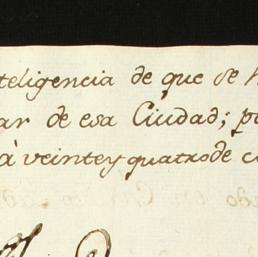 teligencia de que se
ar de esa Ciudad; p
à veinte y quatro de c